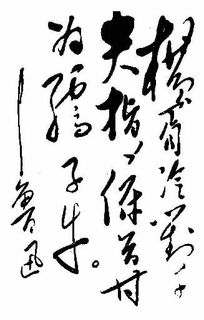 横眉冷對千
夫指，俯首甘
为孺子牛。
——魯迅